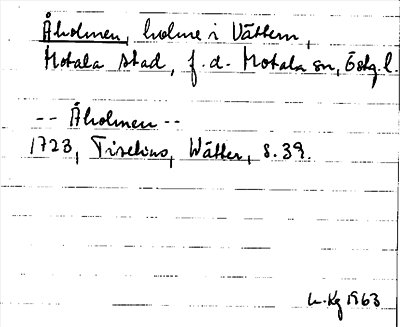 Åholmen, holme i Vättern,
Motala stad, f.d. Motala sn, Östg l.
-- Åholmen --
1723, Tiselius, Wätter, s. 39.
L. Kg 1963